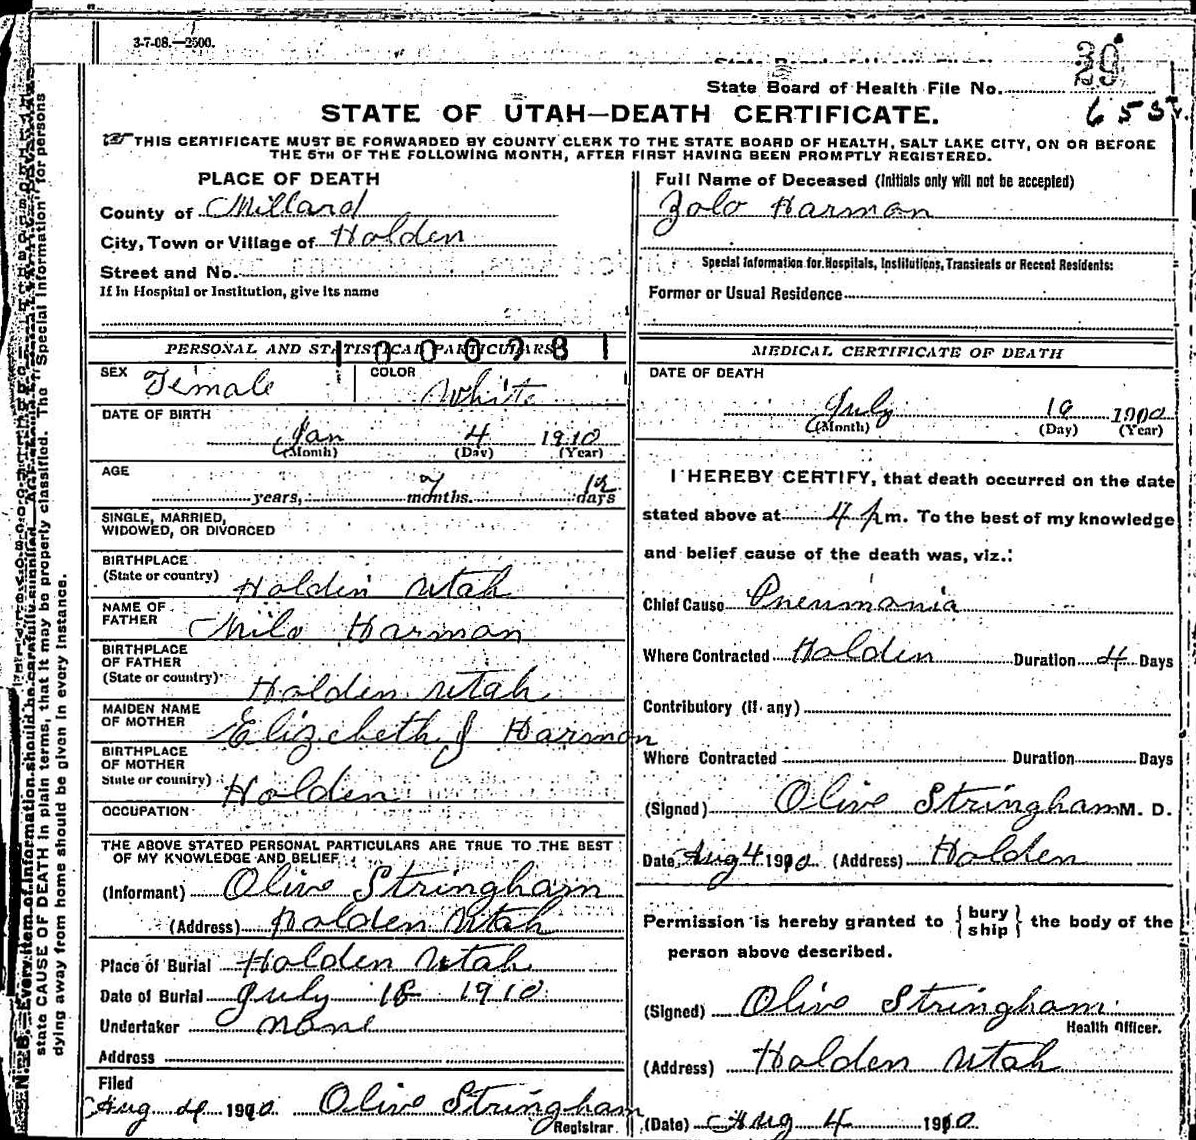 3-7-08.—2500.
39
State Board of Health File No.
STATE OF UTAH—DEATH CERTIFICATE.
655
THIS CERTIFICATE MUST BE FORWARDED BY COUNTY CLERK TO THE STATE BOARD OF HEALTH, SALT LAKE CITY, ON OR BEFORE
THE 5TH OF THE FOLLOWING MONTH, AFTER FIRST HAVING BEEN PROMPTLY REGISTERED.
PLACE OF DEATH
County of Millard
City, Town or Village of Holden
Street and No.
If in Hospital or Institution, give its name
Full Name of Deceased (Initials only will not be accepted)
Zolo Harman
Special Information for Hospitals, Institutions, Transients or Recent Residents:
Former or Usual Residence
PERSONAL AND STATISTICAL PARTICULARS
SEX Female COLOR White
DATE OF BIRTH
Jan 4 1910
(Month) (Day) (Year)
AGE
years, 7 months. 12 days
SINGLE, MARRIED,
WIDOWED, OR DIVORCED
BIRTHPLACE
(State or country) Holden Utah
NAME OF
FATHER Milo Harman
BIRTHPLACE
OF FATHER
(State or country) Holden Utah
MAIDEN NAME
OF MOTHER Elizebeth J Harmon
BIRTHPLACE
OF MOTHER
State or country) Holden
OCCUPATION
THE ABOVE STATED PERSONAL PARTICULARS ARE TRUE TO THE BEST
OF MY KNOWLEDGE AND BELIEF
(Informant) Olive Stringham
(Address) Holden Utah
Place of Burial Holden Utah
Date of Burial July 18 1910
Undertaker none
Address
Filed
Aug 4 1910 Olive Stringham
Registrar.
MEDICAL CERTIFICATE OF DEATH
DATE OF DEATH
July 16 1910
(Month) (Day) (Year)
I HEREBY CERTIFY, that death occurred on the date
stated above at 4 p m. To the best of my knowledge
and belief cause of the death was, viz.:
Chief Cause Pneumania
Where Contracted Holden Duration 4 Days
Contributory (if any)
Where Contracted Duration Days
(Signed) Olive Stringham M. D.
Date Aug 4 1910 (Address) Holden
Permission is hereby granted to { bury ship } the body of the
person above described.
(Signed) Olive Stringham
Health Officer.
(Address) Holden Utah
(Date) Aug 4 1910
state CAUSE OF DEATH in plain terms, that it may be properly classified. The "Special Information" for persons
dying away from home should be given in every instance.